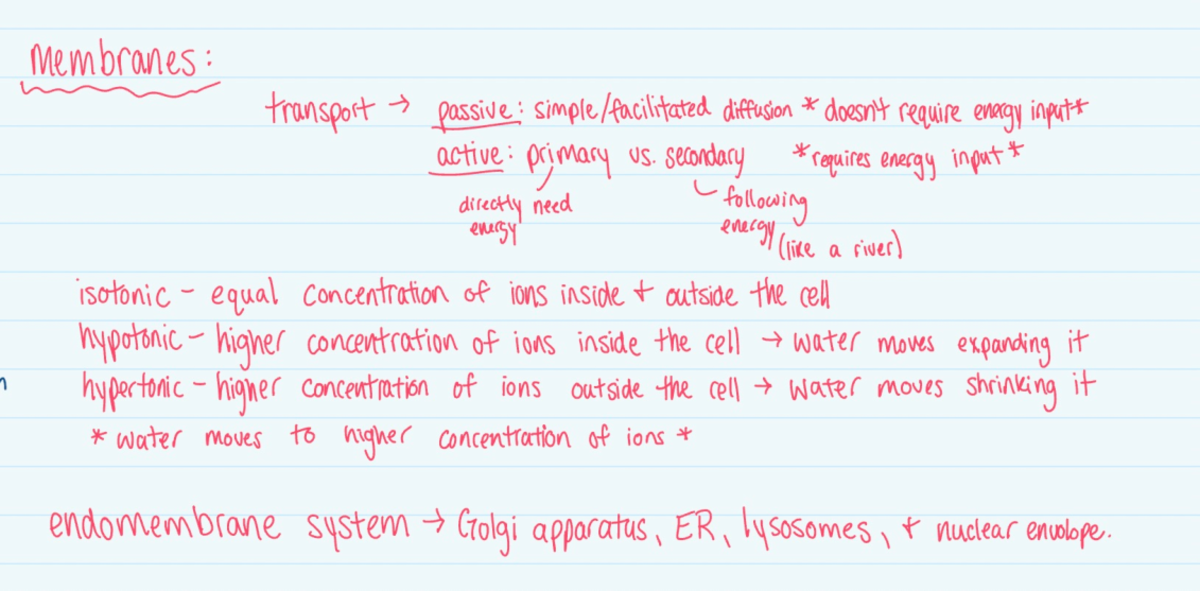 Membranes:
transport → passive: simple/facilitated diffusion * doesn't require energy input*
active: primary vs. secondary *requires energy input*
directly need energy
following energy (like a river)
isotonic - equal concentration of ions inside + outside the cell
hypotonic - higher concentration of ions inside the cell → water moves expanding it
hypertonic - higher concentration of ions outside the cell → water moves shrinking it
* water moves to higher concentration of ions *
endomembrane system → Golgi apparatus, ER, lysosomes, + nuclear envelope.